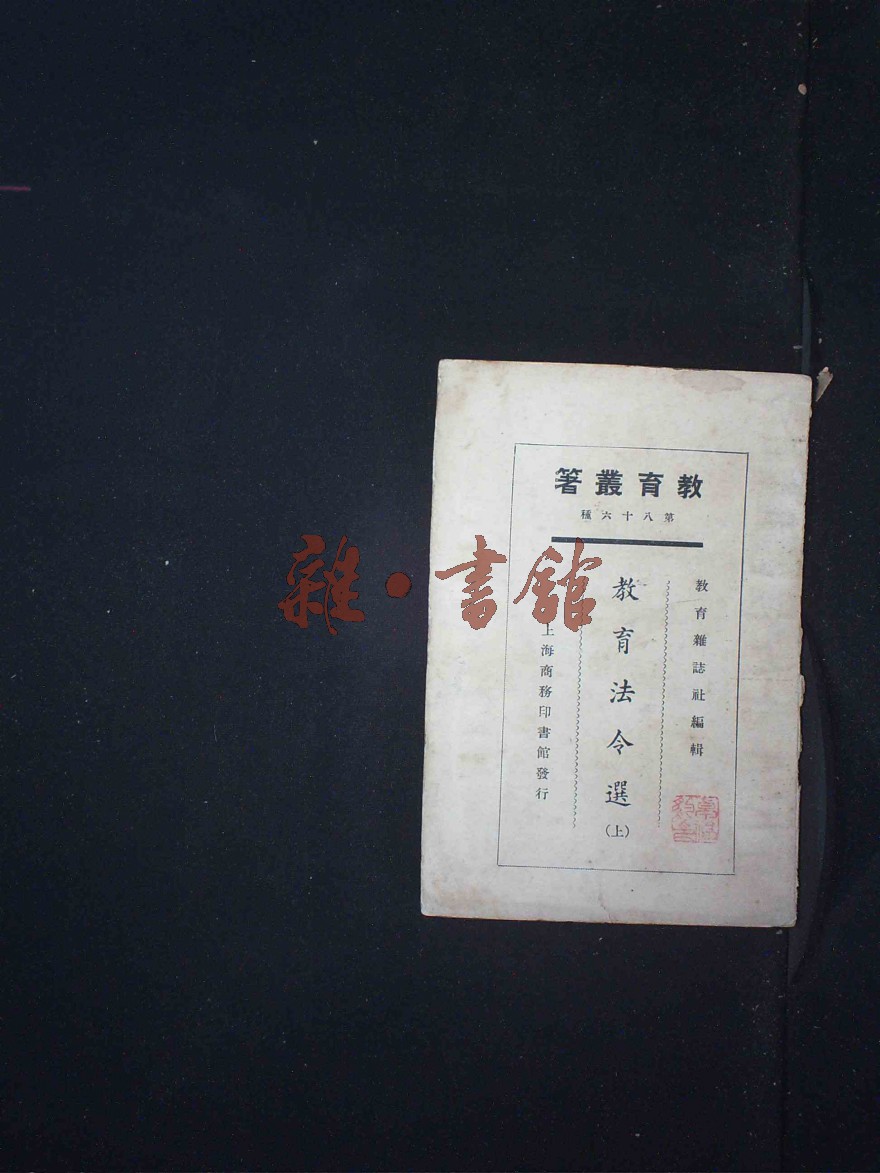 教育叢著
第八十六種
教育雜誌社編輯
教育法令選(上)
上海商務印書館發行
雜·書館